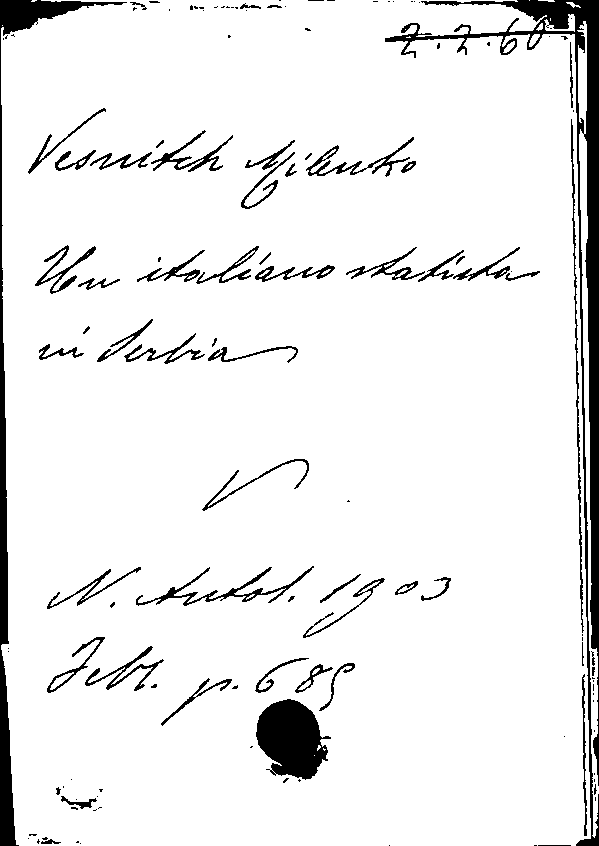 2.2.60
Vesnitch Milenko
Un italiano statista
in Serbia
V
N. Antol. 1903
Febr. p. 689